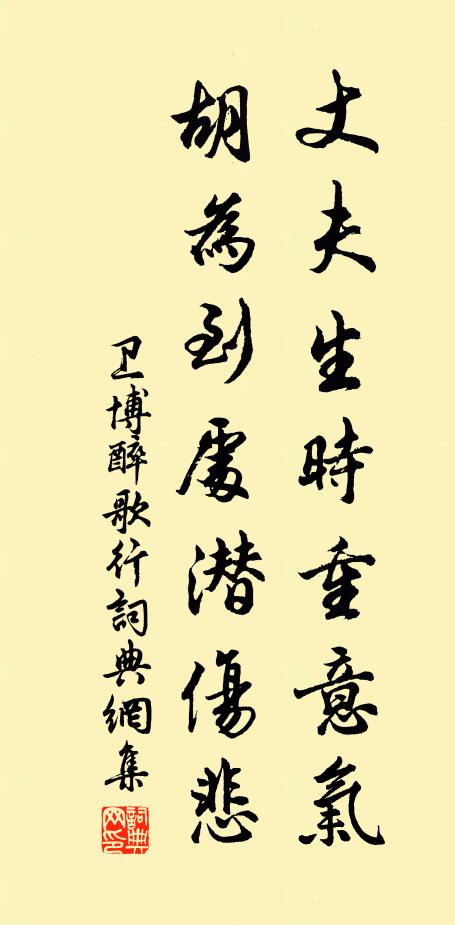 丈夫生時重意氣
胡為到處潛傷悲
卫博醉歌行詞典網集
詞典網印